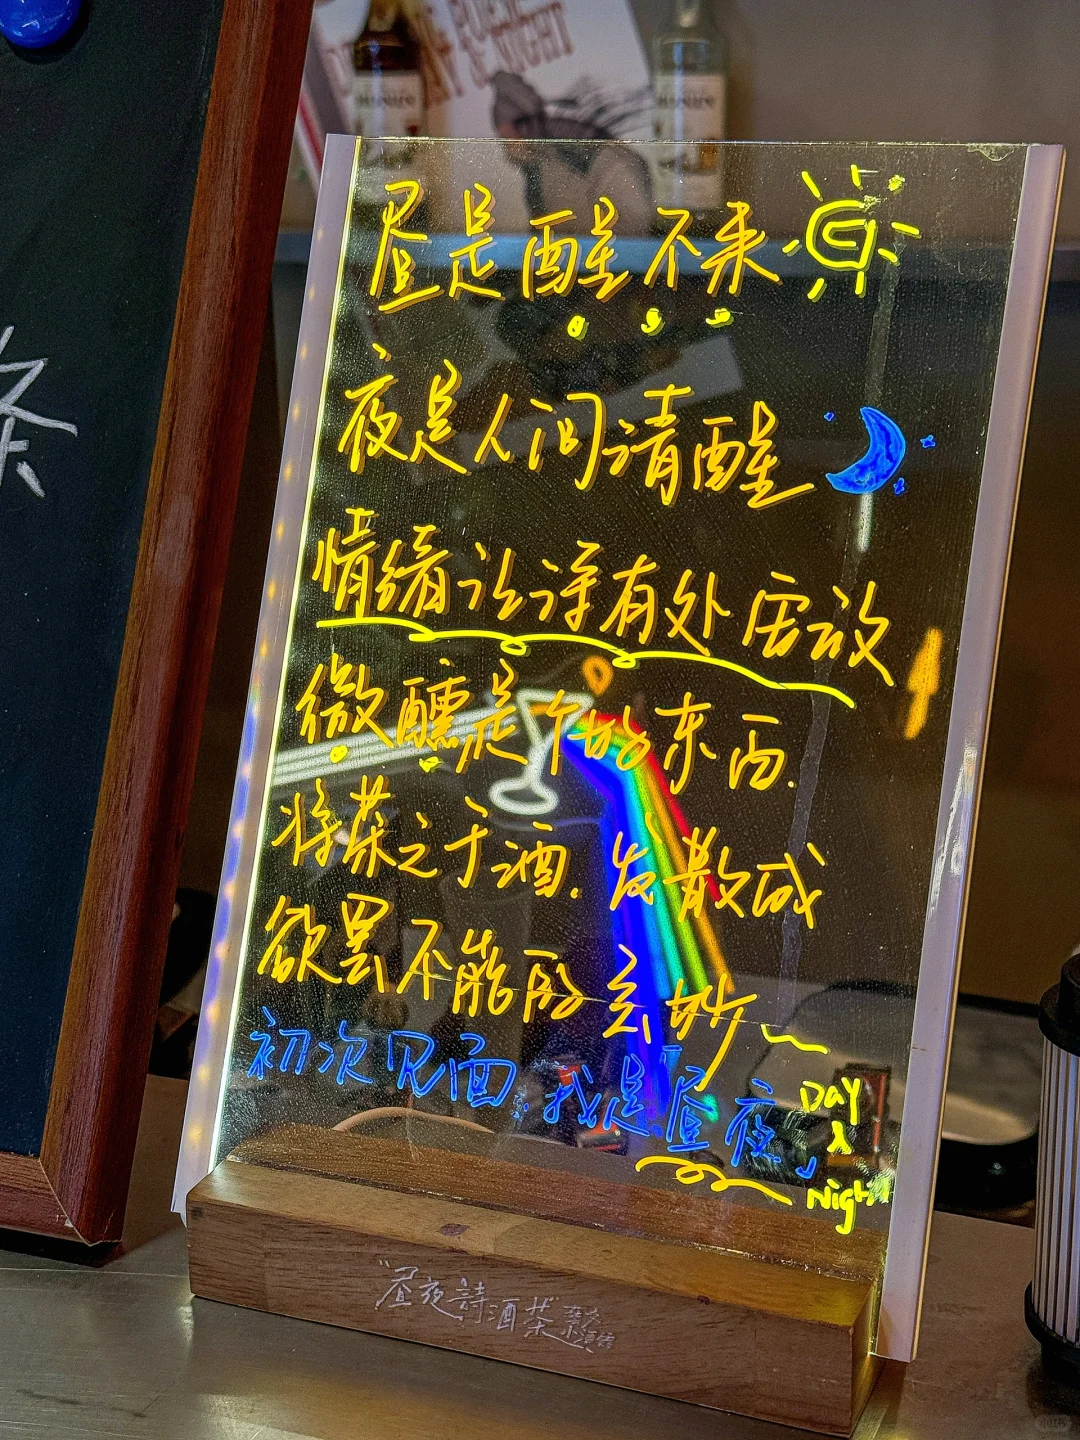 昼是醒不来
夜是人间清醒
情绪让谁有处安放
微醺是个好东西.
将茶之于酒.发散成
欲罢不能的玄妙～
初次见面,我是昼夜」
DAY
&
Night
"昼夜詩酒茶"